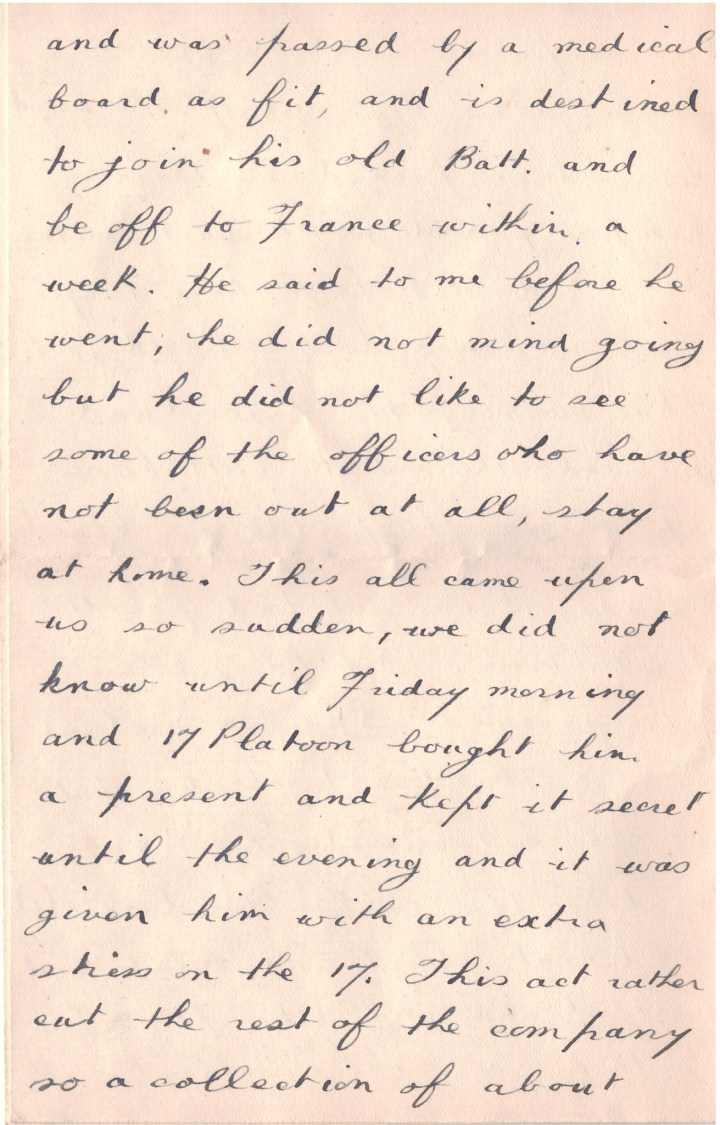 and was passed by a medical
board as fit, and is destined
to join his old Batt. and
be off to France within a
week. He said to me before he
went, he did not mind going
but he did not like to see
some of the officers who have
not been out at all, stay
at home. This all came upon
us so sudden, we did not
know until Friday morning
and 17 Platoon bought him
a present and kept it secret
until the evening and it was
given him with an extra
stress on the 17. This act rather
cut the rest of the company
so a collection of about